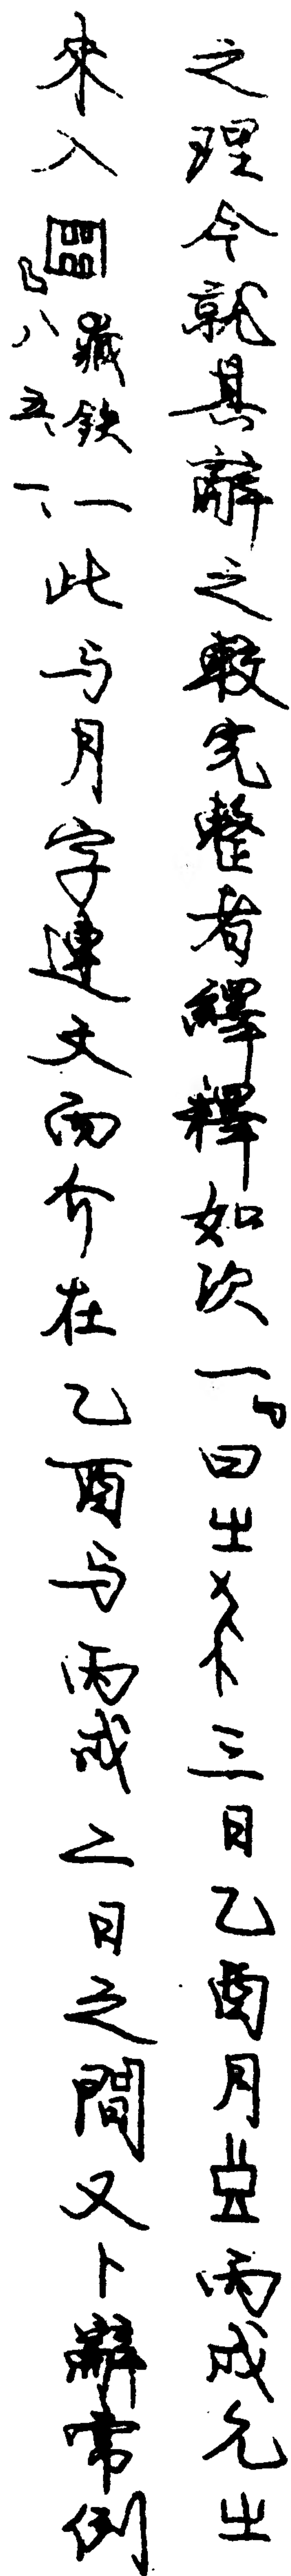 之理今就其辭之較完整者繹釋如次一「曰㞢希三日乙酉月㿝丙戌允㞢
來入齒」藏鉄一八五、一、此与月字連文而介在乙酉与丙戌二日之間又卜辭常例